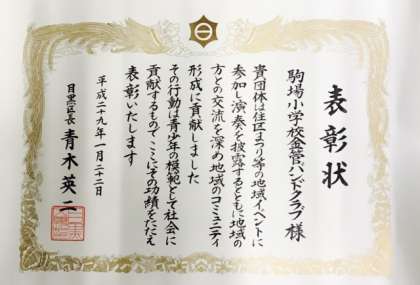 表彰状
駒場小学校金管バンドクラブ 様
貴団体は住区まつり等の地域イベントに
参加し演奏を披露するとともに地域の
方との交流を深め地域のコミュニティ
形成に貢献しました
その行動は青少年の模範として社会に
貢献するものでここにその功績をたたえ
表彰いたします
平成二十九年一月二十二日
目黒区長 青木英二